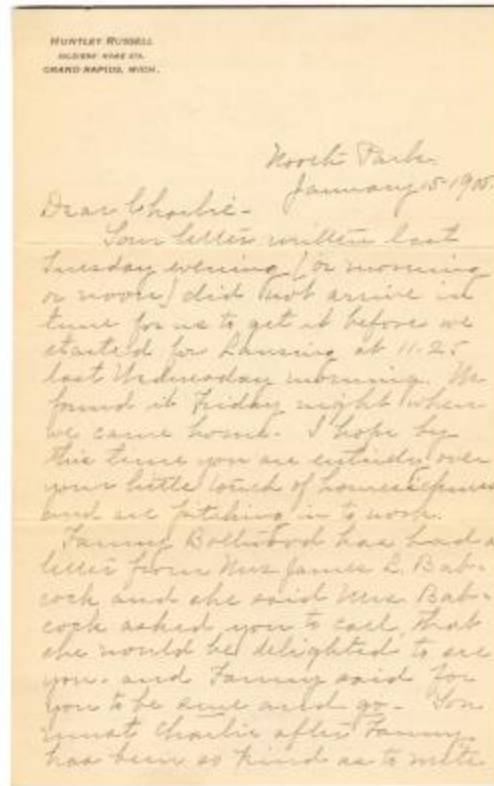 HUNTLEY RUSSELL
SOLDIERS' HOME STA.
GRAND RAPIDS, MICH.
North Park
January 15-1905
Dear Charlie-
Your letter written last
Tuesday evening (or morning
or noon) did not arrive in
time for us to get it before we
started for Lansing at 11-25
last Wednesday morning. We
found it Friday night when
we came home. I hope by
this time you are entirely over
your little touch of homesickness
and are pitching in to work.
Fanny has had a
letter from Mrs James L. Bab-
cock and she said Mrs. Bab-
cock asked you to call, that
she would be delighted to see
you. and Fanny said for
you to be sure and go. You
must Charlie after Fanny
has been so kind as to write